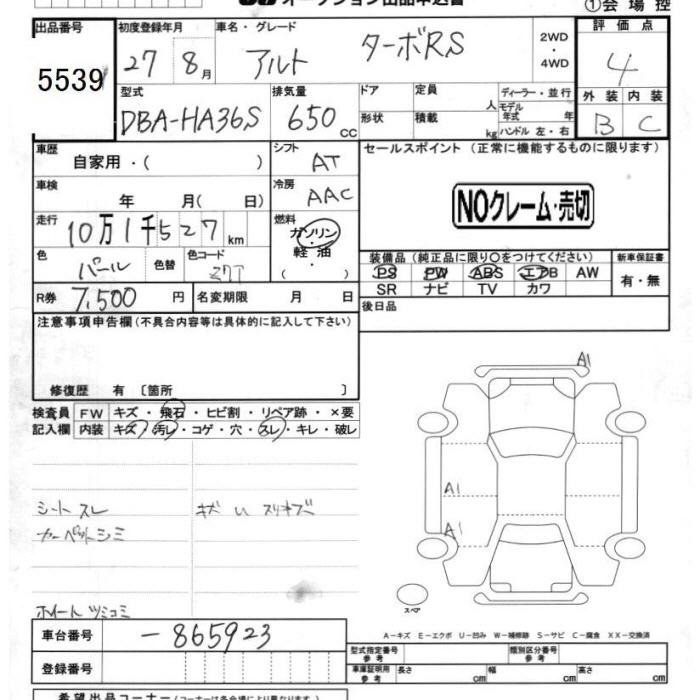 オークション出品申込書 ①会場控
出品番号 初度登録年月 車名・グレード 評価点
5539 27 8月 アルト ターボRS 2WD・4WD 4
型式 排気量 ドア 定員 人 ディーラー・並行 外装 内装
DBA-HA36S 650cc 形状 積載 kg モデル年式 年 ハンドル 左・右 B C
車歴 自家用・( ) シフト AT セールスポイント (正常に機能するものに限ります)
車検 年 月( 日) 冷房 AAC
NOクレーム・売切
走行 10万1千527km 燃料 ガソリン・軽油・( )
色 パール 色替 色コード Z7T 装備品 (純正品に限り○をつけてください) 新車保証書
PS PW ABS エアB AW 有・無
SR ナビ TV カワ
R券 7,500円 名変期限 月 日 後日品
注意事項申告欄(不具合内容等は具体的に記入して下さい)
修復歴 有 〔箇所 〕
A1
検査員 FW キズ・飛石・ヒビ割・リペア跡・×要
記入欄 内装 キズ・汚レ・コゲ・穴・スレ・キレ・破レ
シート スレ キズ い スリキズ A1
カーペットシミ A1
スペア
ホイール ツミコミ
車台番号 -865923 A-キズ E-エクボ U-凹み W-補修跡 S-サビ C-腐食 XX-交換済
型式指定番号 参考 類別区分番号 参考
登録番号 車庫証明用 参考 長さ cm 幅 cm 高さ cm
希望出品コーナー (コーナーは各会場により異なります)